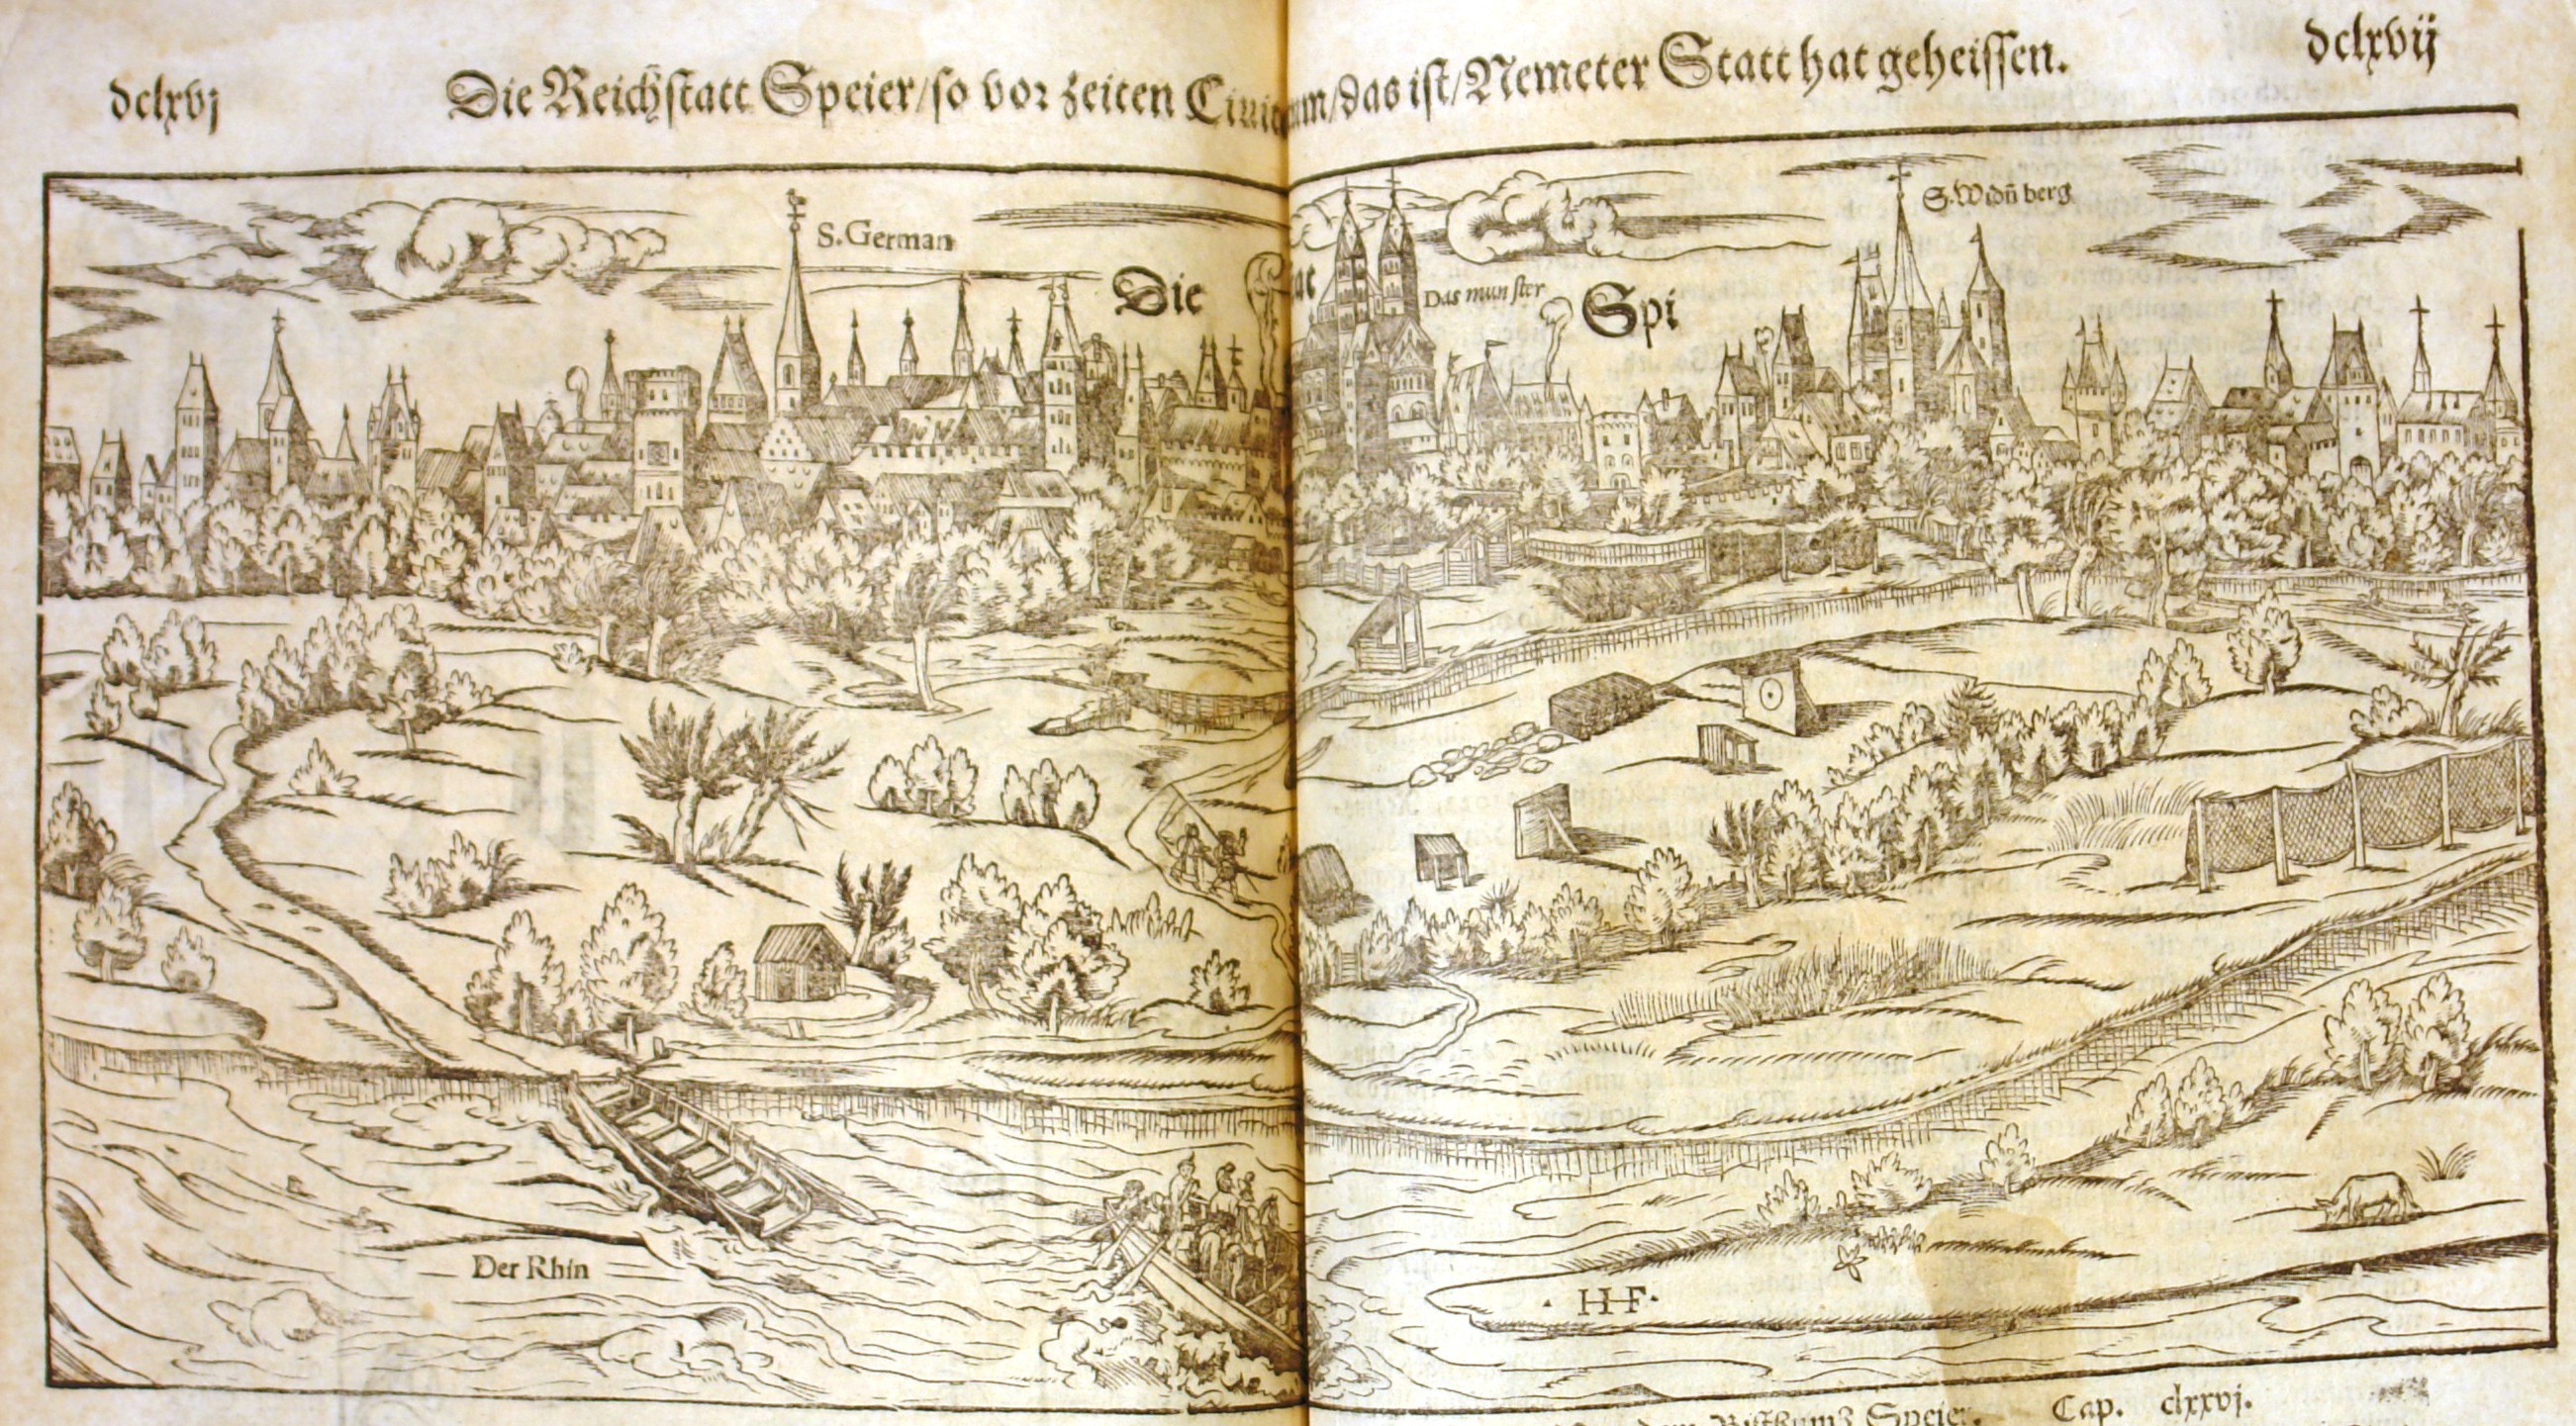 dclxvj
Die Reichstatt Speier/so vor zeiten Ciuit um/das ist/Nemeter Statt hat geheissen.
dclxvij
S. German
Die
Das munster
Spi
S. Widñ berg
Der Rhin
· H·F·
Bisthumb Speier. Cap. clxxvj.